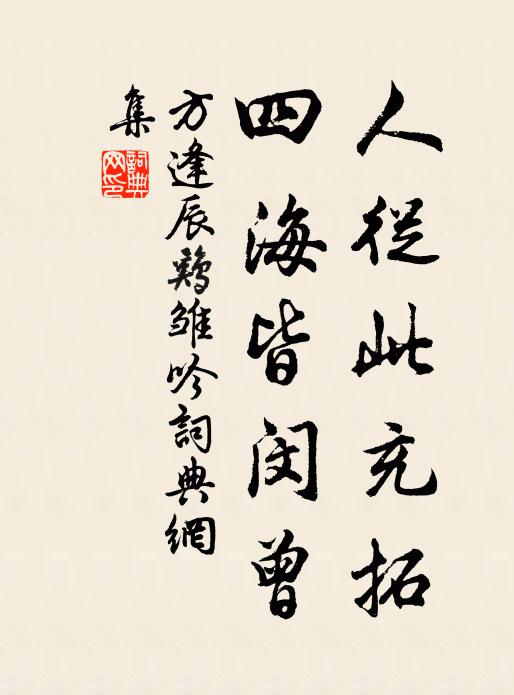 人從此充拓
四海皆閔曾
方逢辰鷄雛吟詞典網
集
詞典网印